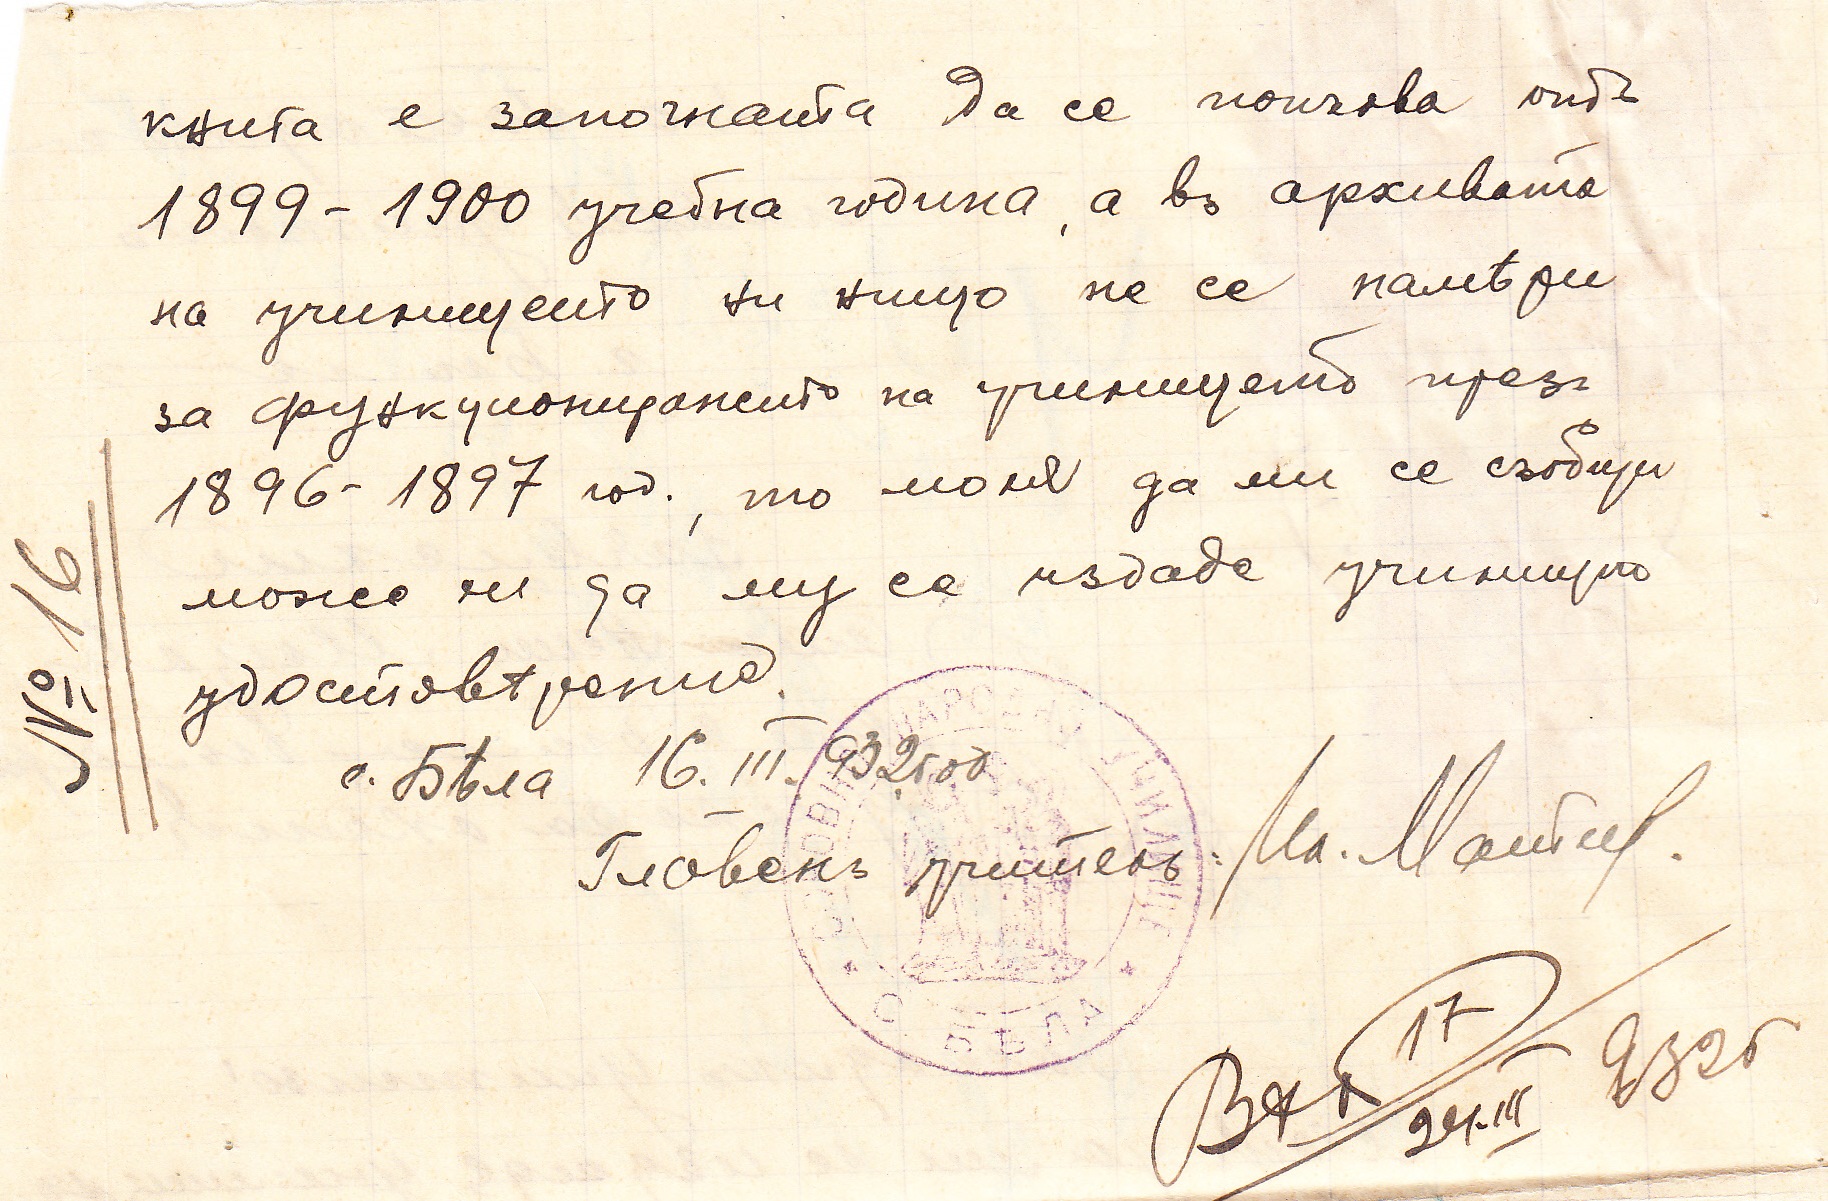 книга е започната да се ползва отъ
1899 - 1900 учебна година, а въ архивата
на училището ни нищо не се намѣри
за функционирането на училището презъ
1896 - 1897 год., то моля да ми се съобщи
може ли да му се издаде училищно
удостовѣрение.
с. Бѣла 16. III. 932 год
Главенъ учитель: Ил. Матѣев.
№ 16
НАРОДНО УЧИЛИЩЕ
С. БѢЛА
Вх № 17
24.III 932 г